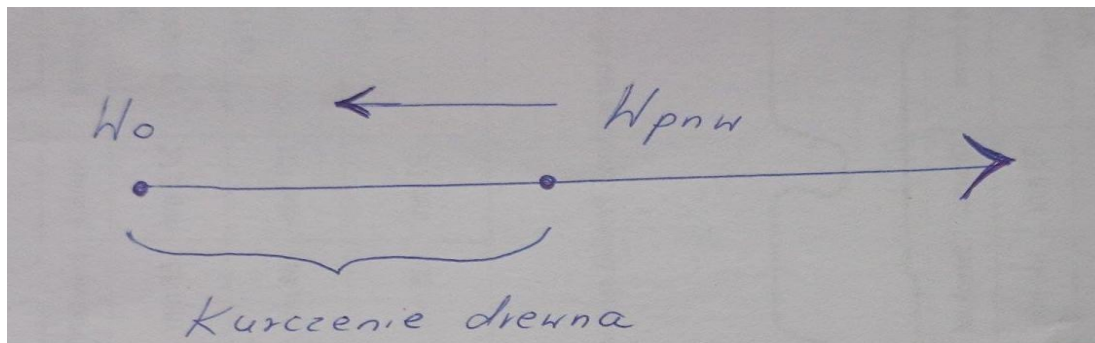 Wo
Wpnw
Kurczenie drewna